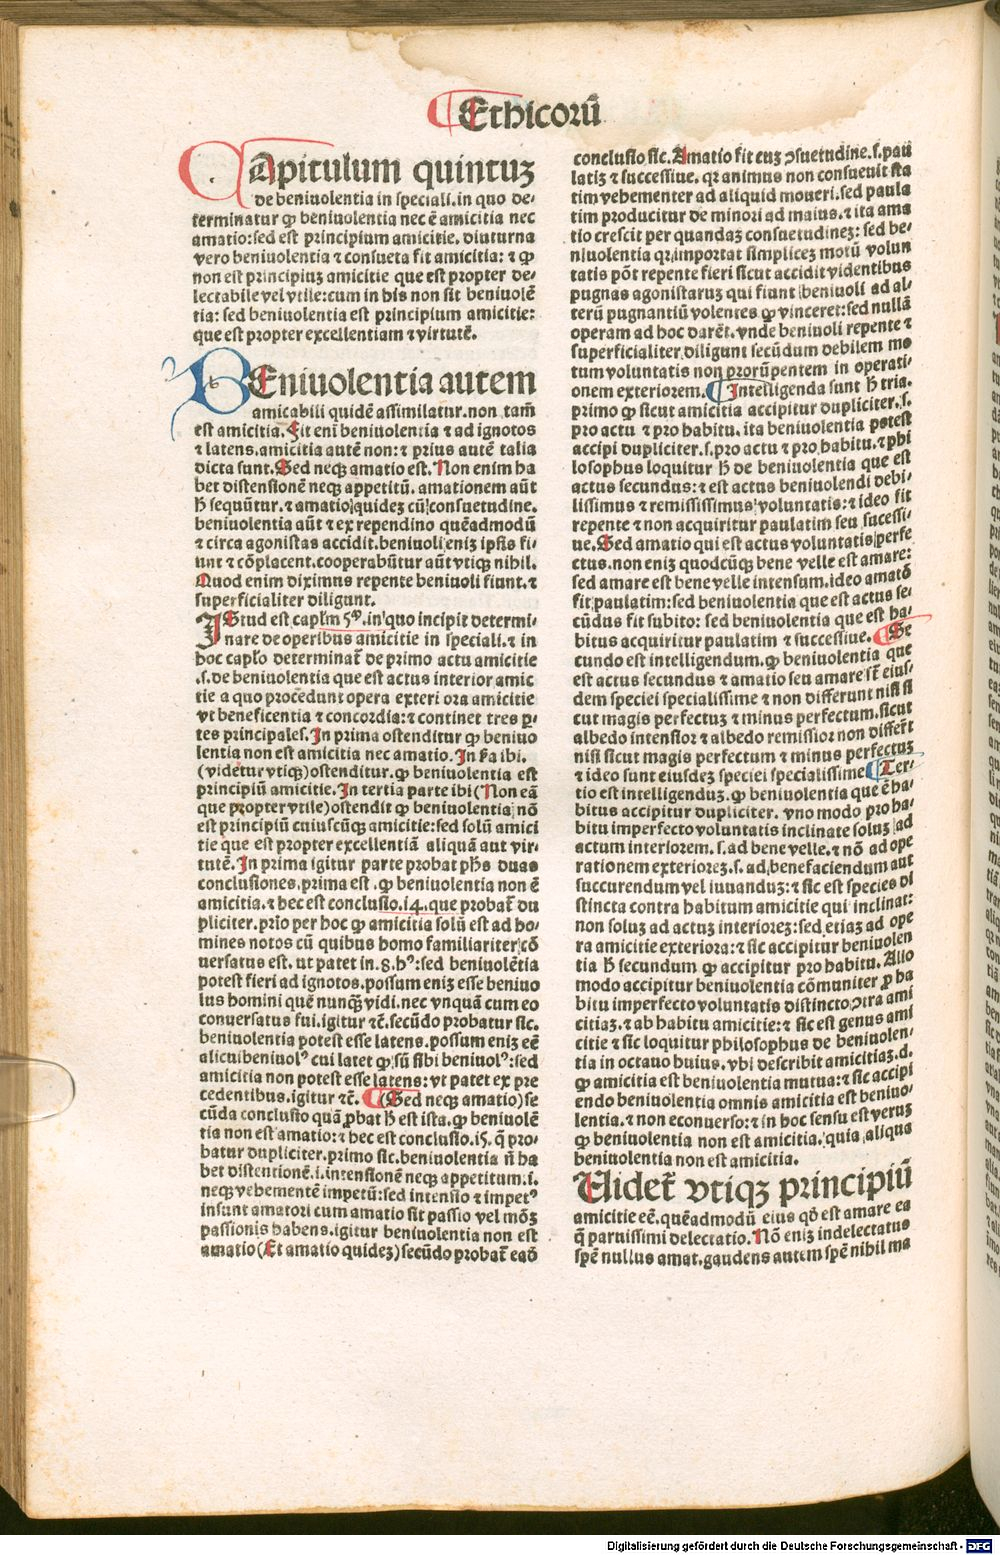 Ethicorū
CApitulum quintuʒ
de beniuolentia in speciali. in quo de⸗
terminatur ꝙ beniuolentia nec ē amicitia nec
amatio: sed est principium amicitie. diuturna
vero beniuolentia ⁊ consueta fit amicitia: ⁊ ꝙ
non est principiuʒ amicitie que est propter de⸗
lectabile vel vtile: cum in his non sit beniuolē
tia: sed beniuolentia est principium amicitie:
que est propter excellentiam ⁊ virtutē.
BEniuolentia autem
amicabili quidē assimilatur. non tam̄
est amicitia. Fit eni̅ beniuolentia ⁊ ad ignotos
⁊ latens. amicitia autē non: ⁊ prius autē talia
dicta sunt. Sed neqꝫ amatio est. Non enim ha
bet distensionē neqꝫ appetitū. amationem aūt
ħ sequūtur. ⁊ amatio quideʒ cū consuetudine.
beniuolentia aūt ⁊ ex rependino quēadmodū
⁊ circa agonistas accidit. beniuoli eniʒ ipsis fi⸗
unt ⁊ cōplacent. cooperabūtur aūt vtiqꝫ nihil.
Quod enim diximus repente beniuoli fiunt. ⁊
superficialiter diligunt.
IStud est capl̅m 5ᵐ. in quo incipit determi⸗
nare de operibus amicitie in speciali. ⁊ in
hoc capl̅o determinat̄ de primo actu amicitie
.s. de beniuolentia que est actus interior amic
tie a quo procedunt opera exteri ora amicitie
vt beneficentia ⁊ concordia: ⁊ continet tres ꝑ⸗
tes principales. In prima ostenditur ꝙ beniuo
lentia non est amicitia nec amatio. In ſcḋa ibi.
(videtur vtiqꝫ) ostenditur. ꝙ beniuolentia est
principiū amicitie. In tertia parte ibi (Non eā
que propter vtile) ostendit ꝙ beniuolentia nō
est principiū cuiuscūqꝫ amicitie: sed solū amici
tie que est propter excellentiā aliquā aut vir⸗
tutē. In prima igitur parte probat ph̅s duas
conclusiones. prima est. ꝙ beniuolentia non ē
amicitia. ⁊ hec est conclusio .14. que probat̄ du
pliciter. prīo per hoc ꝙ amicitia solū est ad ho⸗
mines notos cū quibus homo familiariter cō
uersatus est. vt patet in .8. hꝰ: sed beniuolētia
potest fieri ad ignotos. possum eniʒ esse beniuo
lus homini quē nunqꝫ̄ vidi. nec vnquā cum eo
conuersatus fui. igitur ⁊c̄. secūdo probatur sic.
beniuolentia potest esse latens. possum eniʒ eē
alicui beniuolꝰ cui latet ꝙ sū sibi beniuolꝰ: sed
amicitia non potest esse latens: vt patet ex pre
cedentibus. igitur ⁊c̄. (Sed neqꝫ amatio) se
cūda conclusio quā ꝓbat ħ est ista. ꝙ beniuolē
tia non est amatio: ⁊ hec est conclusio .15. q̄ pro⸗
batur dupliciter. primo sic. beniuolentia n̄ ha
bet distentionē .i. intensionē neqꝫ appetitum .i.
neqꝫ vehementē impetū: sed intensio ⁊ impetꝰ
insunt amatori cum amatio sit passio vel mōʒ
passionis habens. igitur beniuolentia non est
amatio (Et amatio quideʒ) secūdo probat̄ eadē
conclusio sic. Amatio fit cuʒ ꝯsuetudine .s. pau
latiʒ ⁊ successiue. qꝛ animus non consueuit sta
tim vehementer ad aliquid moueri. sed paula
tim producitur de minori ad maius. ⁊ ita ama
tio crescit per quandaʒ consuetudineʒ: sed be⸗
niuolentia qꝛ importat simpliceʒ motū volun
tatis pōt repente fieri sicut accidit videntibus
pugnas agonistaruʒ qui fiunt beniuoli ad al⸗
terū pugnantiū volentes ꝙ vinceret: sed nullā
operam ad hoc darēt. vnde beniuoli repente ⁊
superficialiter diligunt secūdum debilem mo
tum voluntatis non prorūpentem in operati⸗
onem exteriorem. Intelligenda sunt ħ tria.
primo ꝙ sicut amicitia accipitur dupliciter .s.
pro actu ⁊ pro habitu. ita beniuolentia potest
accipi dupliciter .s. pro actu ⁊ pro habitu. ⁊ phi
losophus loquitur ħ de beniuolentia que est
actus secundus: ⁊ est actus beniuolendi debi⸗
lissimus ⁊ remississimus voluntatis: ⁊ ideo fit
repente ⁊ non acquiritur paulatim seu sucessi⸗
ue. Sed amatio qui est actus voluntatis perfe
ctus. non eniʒ quodcūqꝫ bene velle est amare:
sed amare est bene velle intensum. ideo amatō
fit paulatim: sed beniuolentia que est actus se⸗
cūdus fit subito: sed beniuolentia que est ha⸗
bitus acquiritur paulatim ⁊ successiue. Se
cundo est intelligendum. ꝙ beniuolentia que
est actus secundus ⁊ amatio seu amare sūt eius⸗
dem speciei specialissime ⁊ non differunt nisi si
cut magis perfectuʒ ⁊ minus perfectum. sicut
albedo intensior ⁊ albedo remissior non differt̄
nisi sicut magis perfectum ⁊ minus perfectuʒ
⁊ ideo sunt eiusdeʒ speciei specialissime Ter⸗
tio est intelligenduʒ. ꝙ beniuolentia que ē ha⸗
bitus accipitur dupliciter. vno modo pro ha⸗
bitu imperfecto voluntatis inclinate soluʒ ad
actum interiorem .s. ad bene velle. ⁊ nō ad ope
rationem exterioreʒ .s. ad benefaciendum aut
succurendum vel iuuanduʒ: ⁊ sic est species di
stincta contra habitum amicitie qui inclinat:
non soluʒ ad actuʒ interioreʒ: sed etiaʒ ad ope
ra amicitie exteriora: ⁊ sic accipitur beniuolen
tia ħ secundum ꝙ accipitur pro habitu. Alio
modo accipitur beniuolentia cōmuniter ꝓ ha
bitu imperfecto voluntatis distincto ꝯtra ami
citiaʒ. ⁊ ab habitu amicitie: ⁊ sic est genus ami
citie ⁊ sic loquitur philosophus de beniuolen⸗
tia in octauo huius. vbi describit amicitiaʒ .d.
ꝙ amicitia est beniuolentia mutua: ⁊ sic accipi
endo beniuolentia omnis amicitia est beniuo⸗
lentia. ⁊ non econuerso: ⁊ in hoc sensu est veruʒ
ꝙ beniuolentia non est amicitia. quia aliqua
beniuolentia non est amicitia.
Uidet̄ vtiqꝫ principiū
amicitie eē. quēadmodū eius qḋ est amare ea
q̄ ꝑ visum delectatio. Nō eniʒ indelectatus
spē nullus amat. gaudens autem spē nihil ma
Digitalisierung gefördert durch die Deutsche Forschungsgemeinschaft - DFG